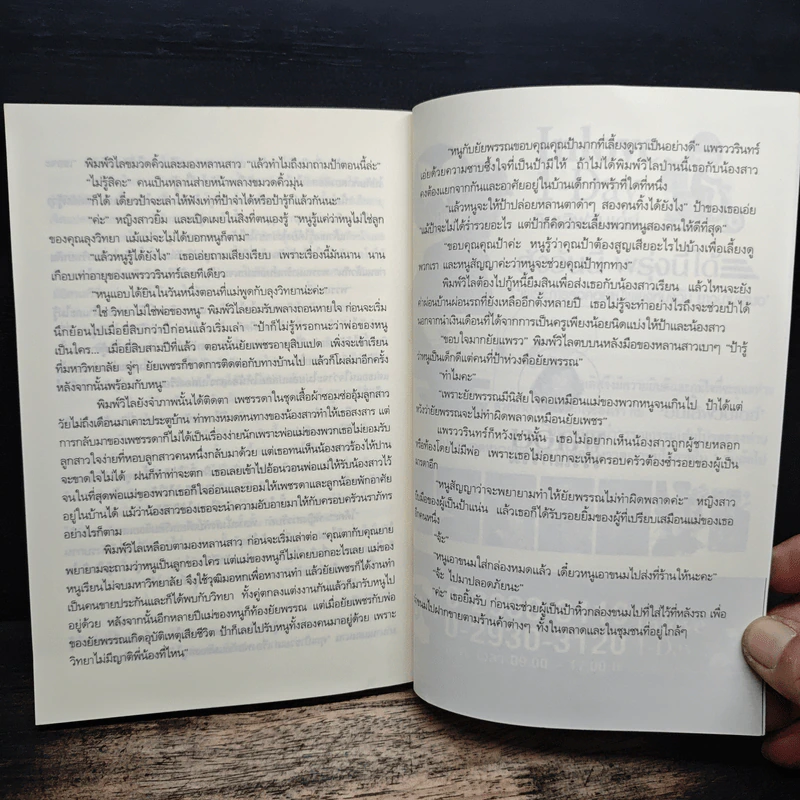 พิมพ์วิไลขมวดคิ้วและมองหลานสาว “แล้วทำไมถึงมาถามป้าตอนนี้ล่ะ”
“ไม่รู้สิคะ” คนเป็นหลานส่ายหน้าพลางขมวดคิ้วมุ่น
“ก็ได้ เดี๋ยวป้าจะเล่าให้ฟังเท่าที่ป้าจำได้หรือป้ารู้ก็แล้วกันนะ”
“ค่ะ” หญิงสาวยิ้ม และเปิดเผยในสิ่งที่ตนเองรู้ “หนูรู้แค่ว่าหนูไม่ใช่ลูก
ของคุณลุงวิทยา แม้แม่จะไม่ได้บอกหนูก็ตาม
“แล้วหนูรู้ได้ยังไง” เธอเอ่ยถามเสียงเรียบ เพราะเรื่องนี้มันนาน นาน
เกือบเท่าอายุของแพรววรินทร์เลยทีเดียว
“หนูแอบได้ยินในวันหนึ่งตอนที่แม่พูดกับลุงวิทยาน่ะค่ะ”
“ใช่ วิทยาไม่ใช่พ่อของหนู” พิมพ์วิไลยอมรับพลางถอนหายใจ ก่อนจะเริ่ม
นึกย้อนไปเมื่อยี่สิบกว่าปีก่อนแล้วเริ่มเล่า “ป้าก็ไม่รู้หรอกนะว่าพ่อของหนู
เป็นใคร... เมื่อยี่สิบสามปีที่แล้ว ตอนนั้นยัยเพชรอายุสิบแปด เพิ่งจะเข้าเรียน
ที่มหาวิทยาลัย จู่ๆ ยัยเพชรก็ขาดการติดต่อกับทางบ้านไป แล้วก็โผล่มาอีกครั้ง
หลังจากนั้นพร้อมกับหนู”
พิมพ์วิไลยังจำภาพนั้นได้ติดตา เพชรรดาในชุดเสื้อผ้าซอมซ่ออุ้มลูกสาว
วัยไม่ถึงเดือนมาเคาะประตูบ้าน ท่าทางหมดหนทางของน้องสาวทำให้เธอสงสาร แต่
การกลับมาของเพชรรดาก็ไม่ได้เป็นเรื่องง่ายนักเพราะพ่อแม่ของพวกเธอไม่ยอมรับ
ลูกสาวใจง่ายที่หอบลูกสาวคนหนึ่งกลับมาด้วย แต่เธอทนเห็นน้องสาวร้องไห้ปาน
จะขาดใจไม่ได้ ฝนก็ทำท่าจะตก เธอเลยเข้าไปอ้อนวอนพ่อแม่ให้รับน้องสาวไว้
จนในที่สุดพ่อแม่ของพวกเธอก็ใจอ่อนและยอมให้เพชรดาและลูกน้อยพักอาศัย
อยู่ในบ้านได้ แม้ว่าน้องสาวของเธอจะนำความอับอายมาให้กับครอบครัวนราภัทร
อย่างไรก็ตาม
พิมพ์วิไลเหลือบตามองหลานสาว ก่อนจะเริ่มเล่าต่อ “คุณตากับคุณยาย
พยายามจะถามว่าหนูเป็นลูกของใคร แต่แม่ของหนูก็ไม่เคยบอกอะไรเลย แม่ของ
หนูเรียนไม่จบมหาวิทยาลัย จึงใช้วุฒิมอหกเพื่อหางานทำ แล้วยัยเพชรก็ได้งานทำ
เป็นคนขายประกันและก็ได้พบกับวิทยา ทั้งคู่ตกลงแต่งงานกันแล้วก็มารับหนูไป
อยู่ด้วย หลังจากนั้นอีกหลายปีแม่ของหนูก็ท้องยัยพรรณ แต่เมื่อยัยเพชรกับพ่อ
ของยัยพรรณเกิดอุบัติเหตุเสียชีวิต ป้าก็เลยไปรับหนูทั้งสองคนมาอยู่ด้วย เพราะ
วิทยาไม่มีญาติพี่น้องที่ไหน”
“หนูกับยัยพรรณขอบคุณคุณป้ามากที่เลี้ยงดูเราเป็นอย่างดี” แพรววรินทร์
เอ่ยด้วยความซาบซึ้งใจที่เป็นป้ามีให้ ถ้าไม่ได้พิมพ์วิไลป่านนี้เธอกับน้องสาว
คงต้องแยกจากกันและอาศัยอยู่ในบ้านเด็กกำพร้าที่ใดที่หนึ่ง
“แล้วหนูจะให้ป้าปล่อยหลานตาดำๆ สองคนทิ้งได้ยังไง” ป้าของเธอเอ่ย
“แม้ป้าจะไม่ได้ร่ำรวยอะไร แต่ป้าก็คิดว่าจะเลี้ยงพวกหนูสองคนให้ดีที่สุด”
“ขอบคุณคุณป้าค่ะ หนูรู้ว่าคุณป้าต้องสูญเสียอะไรไปบ้างเพื่อเลี้ยงดู
พวกเรา และหนูสัญญาค่ะว่าหนูจะช่วยคุณป้าทุกทาง”
พิมพ์วิไลต้องไปกู้หนี้ยืมสินเพื่อส่งเธอกับน้องสาวเรียน แล้วไหนจะยัง
ค่าผ่อนบ้านผ่อนรถที่ยังเหลืออีกตั้งหลายปี เธอไม่รู้จะทำอย่างไรถึงจะช่วยป้าได้
นอกจากนำเงินเดือนที่ได้จากการเป็นครูเพียงน้อยนิดแบ่งให้ป้าและน้องสาว
“ขอบใจมากยัยแพรว” พิมพ์วิไลตบบนหลังมือของหลานสาวเบาๆ “ป้ารู้
ว่าหนูเป็นเด็กดีแต่คนที่ป้าห่วงคือยัยพรรณ”
“ทำไมคะ”
“เพราะยัยพรรณมีนิสัยใจคอเหมือนแม่ของพวกหนูจนเกินไป ป้าได้แต่
หวังว่ายัยพรรณจะไม่ทำผิดพลาดเหมือนยัยเพชร”
แพรววรินทร์ก็หวังเช่นนั้น เธอไม่อยากเห็นน้องสาวถูกผู้ชายหลอก
หรือท้องโดยไม่มีพ่อ เพราะเธอไม่อยากจะเห็นครอบครัวต้องช้ำรอยของผู้เป็น
มารดาอีก
“หนูสัญญาว่าจะพยายามทำให้ยัยพรรณไม่ทำผิดพลาดค่ะ” หญิงสาว
มือของผู้เป็นป้าแน่น แล้วเธอก็ได้รับรอยยิ้มของผู้ที่เปรียบเสมือนแม่ของเธอ
คนหนึ่ง
“จ้ะ”
“หนูเอาขนมใส่กล่องหมดแล้ว เดี๋ยวหนูเอาขนมไปส่งที่ร้านให้นะคะ”
“จ้ะ ไปมาปลอดภัยนะ”
“ค่ะ” เธอยิ้มรับ ก่อนจะช่วยผู้เป็นป้าหิ้วกล่องขนมไปที่ใส่ไว้ที่หลังรถ เพื่อ
ขนมไปฝากขายตามร้านค้าต่างๆ ทั้งในตลาดและในชุมชนที่อยู่ใกล้ๆ